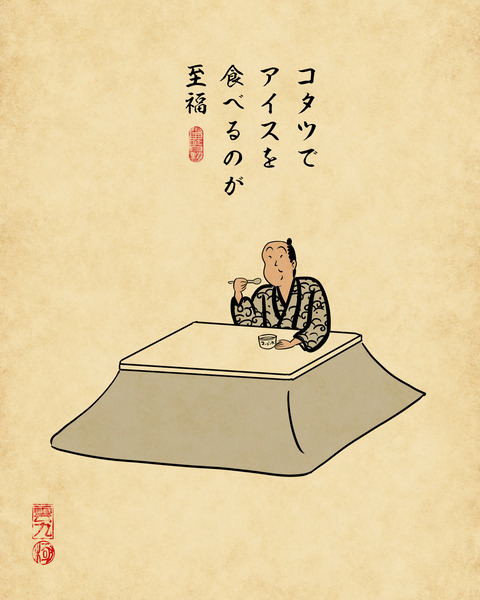 コタツで
アイスを
食べるのが
至福